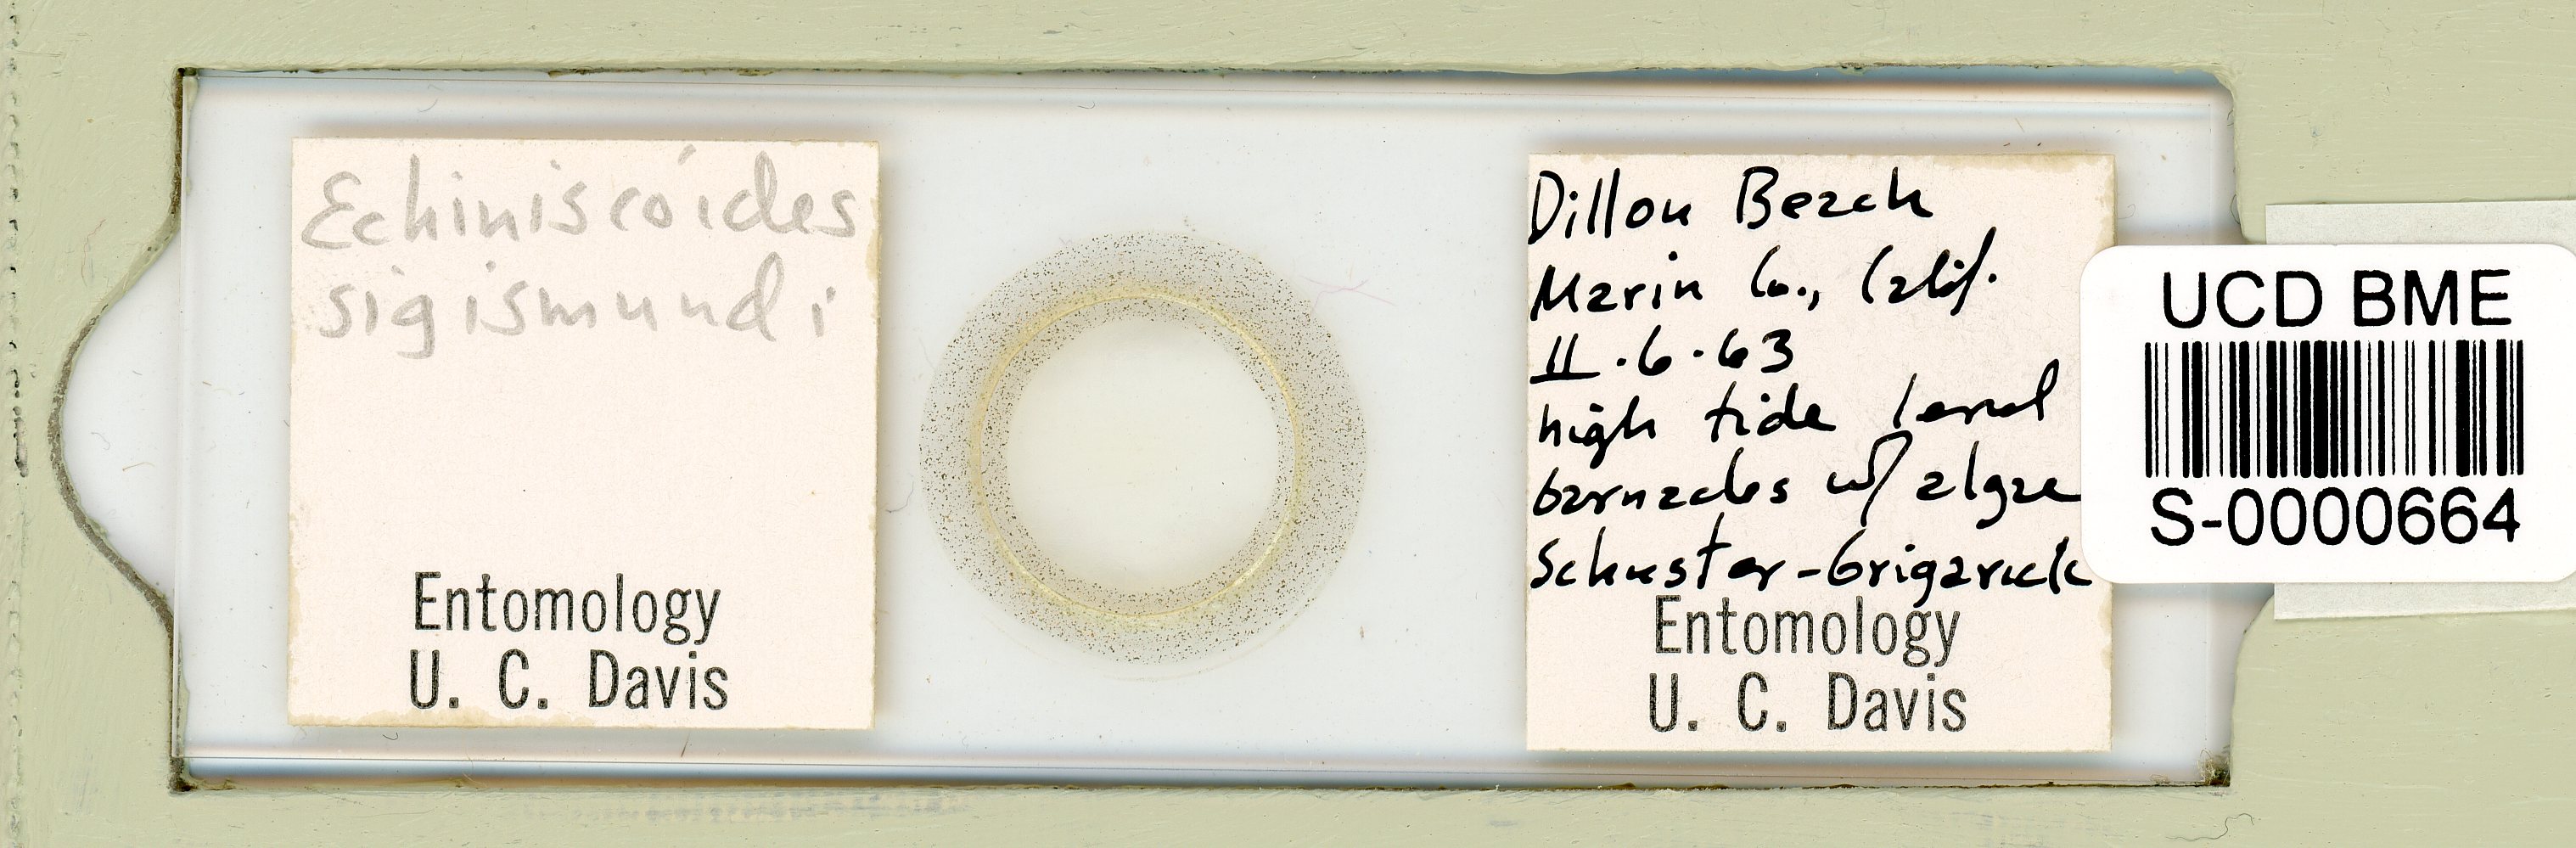 Echiniscoides
sigismundi
Entomology
U. C. Davis
Dillon Beach
Marin Co., Calif.
II.6.63
high tide level
barnacles w/ algae
Schuster-Grigarick
Entomology
U. C. Davis
UCD BME
S-0000664